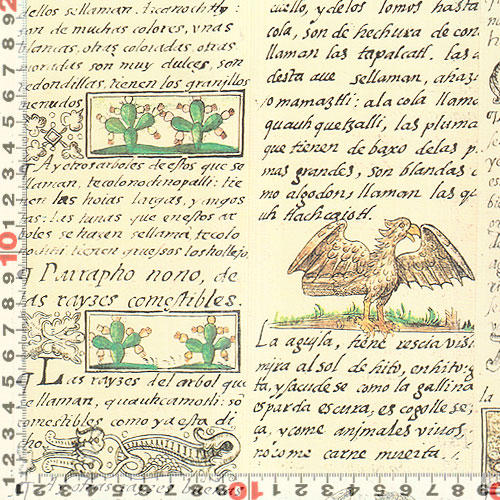 dellos sellaman.
son de muchas colores, vnas
blancas, otras coloradas, otras
coloradas son muy dulces, son
redondillas, tienen los granillos
menudos
¶ Ay otros arboles de estos que se
llaman, tecolonochnopalli: tie
nen las hoias largas, y
as: las tunas que en estos ar
boles se hazen sellama, tecolo
tienen gruessos los hollejo,
¶ Parrapho nono, de
las rayzes comestibles.
¶ Las rayzes del arbol que
se llaman, quauhcamotli: so
comestibles, como ya esta di
cho
cuello, y delos lomos hasta
cola, son de hechura de con
llaman las tapalcatl. las
desta aue sellaman, ahaz
o mamaztli: ala cola llama
quauhquetzalli, las pluma
que tienen de baxo delas
mas grandes, son blandas c
mo algodon, llaman las q
uh tlachcaiotl.
La aguyla, tiene rescia vis
mira al sol de hito, en hito: g
ta, y sacude se como la gallina
es parda escura, es cogolle se,
ca, y come animales viuos,
no come carne muerta.